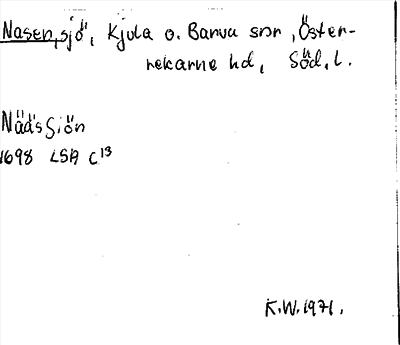 Nasen, sjö, Kjula o. Barva snr, Öster-
rekarne hd, Söd. l.
Nääs Siön
1698 LSA C¹³
K.W. 1971.